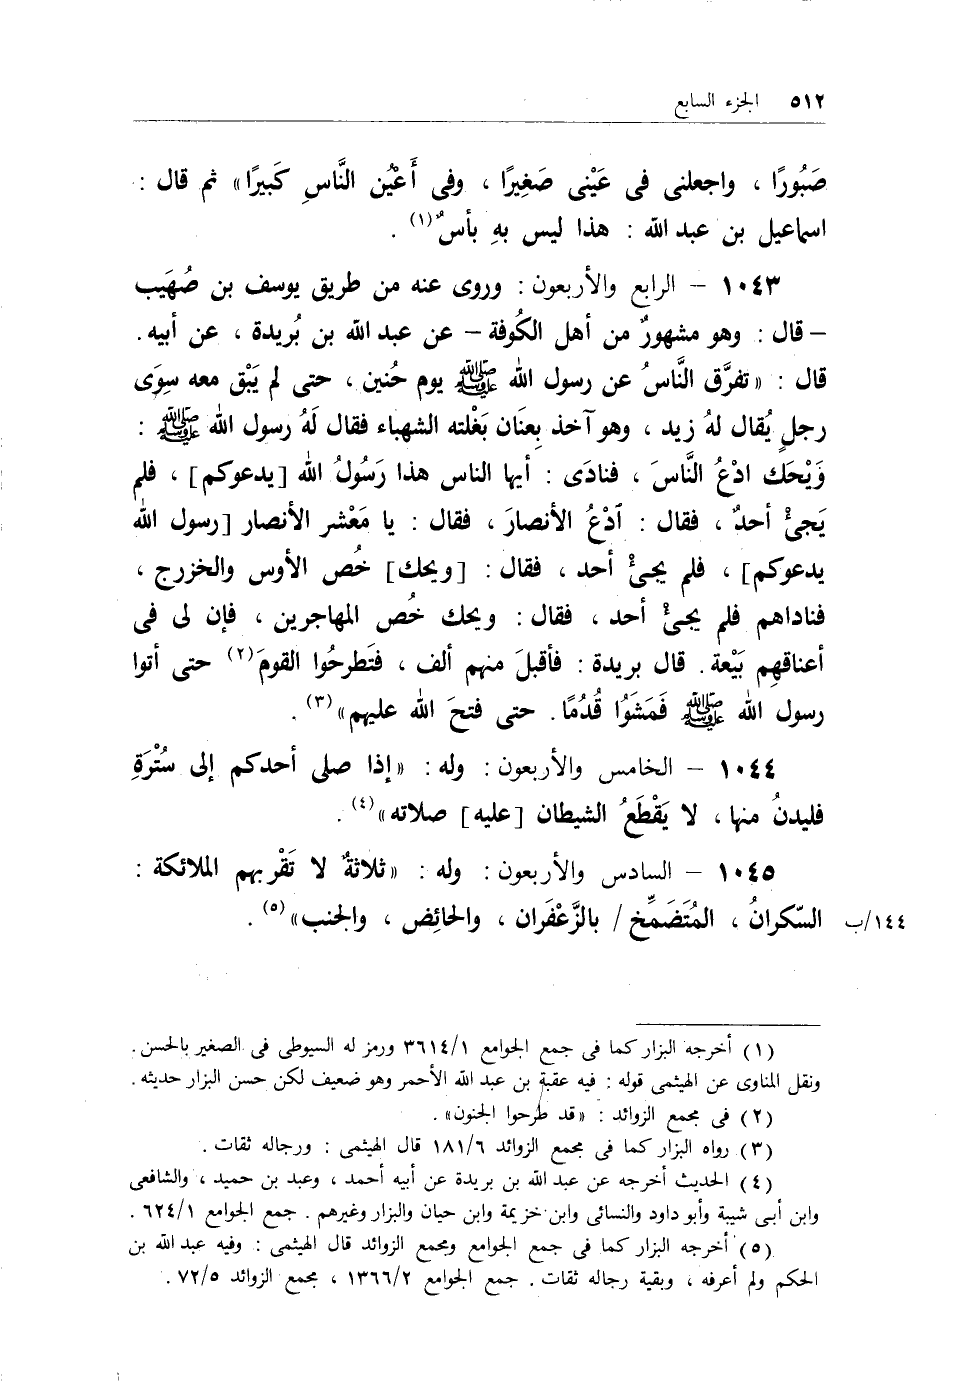 ٥١٢ الجزء السابع
صَبُورًا ، واجعلنى فى عَيْنى صَغِيرًا ، وفى أَعْيُن النَّاسِ كَبيرًا» ثم قال :
اسماعيل بن عبد الله : هذا ليس بهِ بأسٌ(١) .
١٠٤٣ – الرابع والأربعون : وروى عنه من طريق يوسف بن صُهَيب
– قال : وهو مشهورٌ من أهل الكُوفة – عن عبد الله بن بُريدة ، عن أبيه .
قال : «تفرَّق النَّاسُ عن رسول الله ﷺ يوم حُنين ، حتى لم يَبْق معه سِوَى
رجلٍ يُقال لهُ زيد ، وهو آخذ بِعنَان بَغْلته الشهباء فقال لَهُ رسول الله ﷺ :
وَيْحَك ادْعُ النَّاسَ ، فنادَى : أيها الناس هذا رَسُولُ الله [يدعوكم] ، فلم
يَجئْ أحدٌ ، فقال : ٱدْعُ الأنصارَ ، فقال : يا مَعْشر الأنصار [رسول الله
يدعوكم] ، فلم يجئْ أحد ، فقال : [ويحك] خُص الأوس والخزرج ،
فناداهم فلم يجئْ أحد ، فقال : ويحك خُص المهاجرين ، فإن لى فى
أعناقهِم بَيْعة . قال بريدة : فأقبلَ منهم ألف ، قَتَطرحُوا القومَ(٢) حتى أتوا
رسول الله ﷺ فَمَشَوُا قُدُمًا . حتى فتحَ الله عليهم»(٣) .
١٠٤٤ – الخامس والأربعون : وله : «إذا صلى أحدكم إلى سُتْرَةِ
فليدنُ منها ، لا يَقْطَعُ الشيطان [عليه] صلاته»(٤) .
١٠٤٥ – السادس والأربعون : وله : «ثلاثةٌ لا تَقْربهم الملائكة :
السّكرانُ ، المُتَضَمِّخ / بالزَّعْفَران ، والحائِض ، والجنب»(٥) . ١٤٤/ب
(١) أخرجه البزار كما فى جمع الجوامع ٣٦١٤/١ ورمز له السيوطى فى الصغير بالحسن .
ونقل المناوى عن الهيثمى قوله : فيه عقبة بن عبد الله الأحمر وهو ضعيف لكن حسن البزار حديثه .
(٢) فى مجمع الزوائد : «قد طرحوا الجنون» .
(٣) رواه البزار كما فى مجمع الزوائد ١٨١/٦ قال الهيثمى : ورجاله ثقات .
(٤) الحديث أخرجه عن عبد الله بن بريدة عن أبيه أحمد ، وعبد بن حميد ، والشافعى
وابن أبى شيبة وأبو داود والنسائى وابن خزيمة وابن حيان والبزار وغيرهم . جمع الجوامع ٦٢٤/١ .
(٥) أخرجه البزار كما فى جمع الجوامع ومجمع الزوائد قال الهيثمى : وفيه عبد الله بن
الحكم ولم أعرفه ، وبقية رجاله ثقات . جمع الجوامع ١٣٦٦/٢ ، مجمع الزوائد ٧٢/٥ .